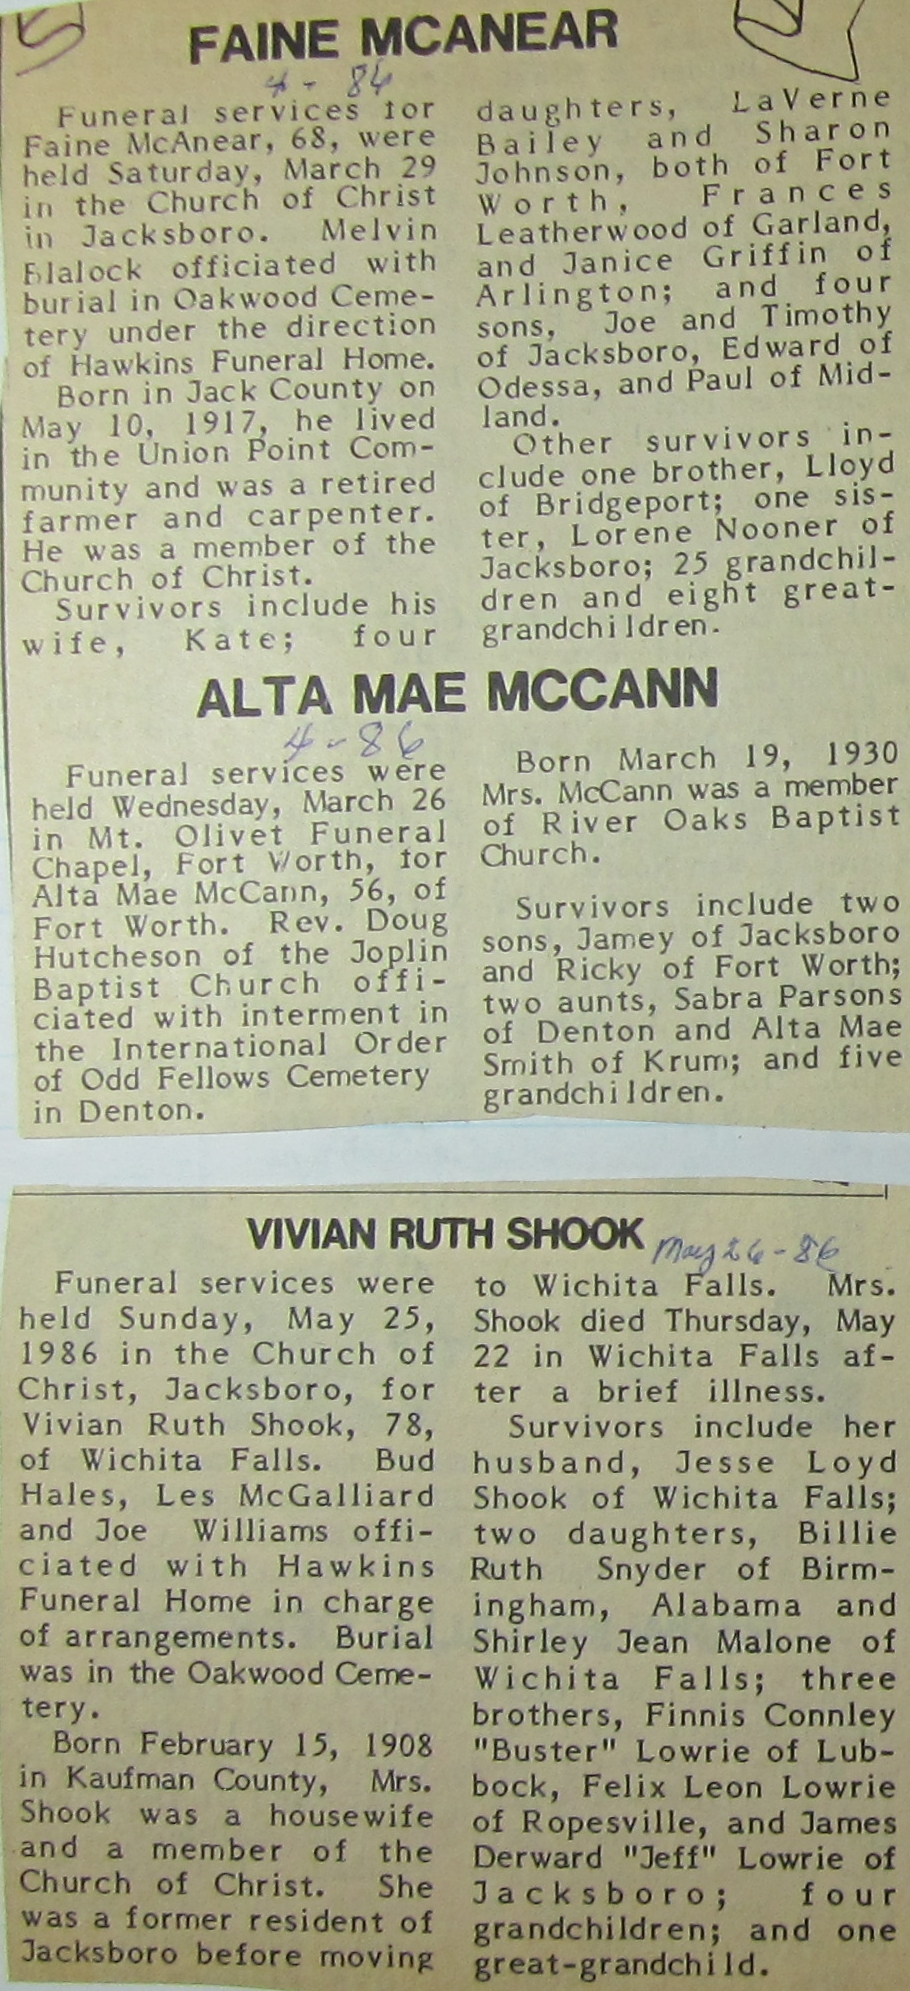 FAINE MCANEAR
4 - 86
Funeral services for
Faine McAnear, 68, were
held Saturday, March 29
in the Church of Christ
in Jacksboro. Melvin
Blalock officiated with
burial in Oakwood Ceme-
tery under the direction
of Hawkins Funeral Home.
Born in Jack County on
May 10, 1917, he lived
in the Union Point Com-
munity and was a retired
farmer and carpenter.
He was a member of the
Church of Christ.
Survivors include his
wife, Kate; four
daughters, LaVerne
Bailey and Sharon
Johnson, both of Fort
Worth, Frances
Leatherwood of Garland,
and Janice Griffin of
Arlington; and four
sons, Joe and Timothy
of Jacksboro, Edward of
Odessa, and Paul of Mid-
land.
Other survivors in-
clude one brother, Lloyd
of Bridgeport; one sis-
ter, Lorene Nooner of
Jacksboro; 25 grandchil-
dren and eight great-
grandchildren.
ALTA MAE MCCANN
4-86
Funeral services were
held Wednesday, March 26
in Mt. Olivet Funeral
Chapel, Fort Worth, for
Alta Mae McCann, 56, of
Fort Worth. Rev. Doug
Hutcheson of the Joplin
Baptist Church offi-
ciated with interment in
the International Order
of Odd Fellows Cemetery
in Denton.
Born March 19, 1930
Mrs. McCann was a member
of River Oaks Baptist
Church.
Survivors include two
sons, Jamey of Jacksboro
and Ricky of Fort Worth;
two aunts, Sabra Parsons
of Denton and Alta Mae
Smith of Krum; and five
grandchildren.
VIVIAN RUTH SHOOK
May 26-86
Funeral services were
held Sunday, May 25,
1986 in the Church of
Christ, Jacksboro, for
Vivian Ruth Shook, 78,
of Wichita Falls. Bud
Hales, Les McGalliard
and Joe Williams offi-
ciated with Hawkins
Funeral Home in charge
of arrangements. Burial
was in the Oakwood Ceme-
tery.
Born February 15, 1908
in Kaufman County, Mrs.
Shook was a housewife
and a member of the
Church of Christ. She
was a former resident of
Jacksboro before moving
to Wichita Falls. Mrs.
Shook died Thursday, May
22 in Wichita Falls af-
ter a brief illness.
Survivors include her
husband, Jesse Loyd
Shook of Wichita Falls;
two daughters, Billie
Ruth Snyder of Birm-
ingham, Alabama and
Shirley Jean Malone of
Wichita Falls; three
brothers, Finnis Connley
"Buster" Lowrie of Lub-
bock, Felix Leon Lowrie
of Ropesville, and James
Derward "Jeff" Lowrie of
Jacksboro; four
grandchildren; and one
great-grandchild.